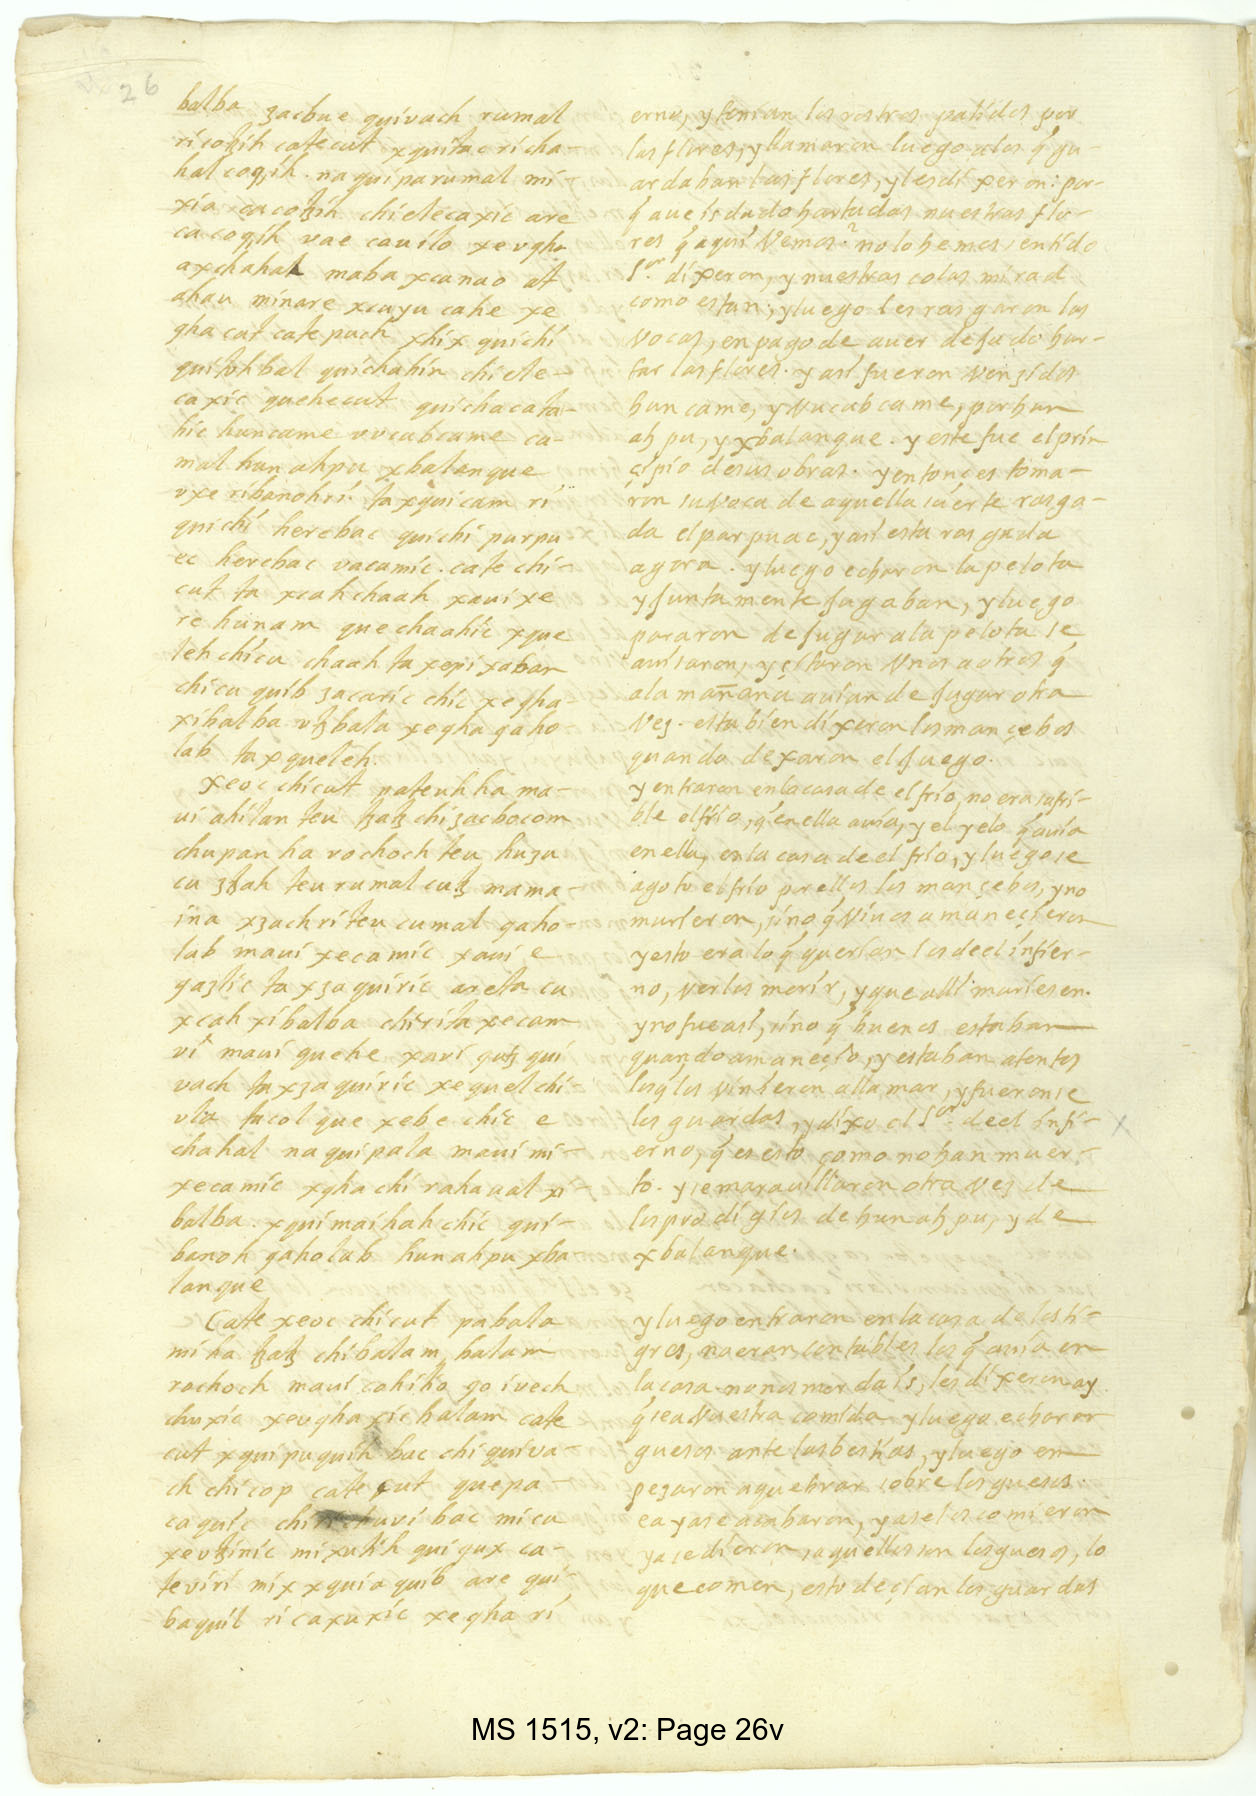 26
balba zacbue quivach rumal
ricotzih catecut xquitac richa-
hal cotzih. naquiparumal mi-
xia cacotzih chielecaxic are
cacotzih vae cauilo xevgha
axchahal maba xcanao at
ahau minare xcuyu cahe xe
gha cut catepuch xhix quichi
quitohbal quichahin chiele-
caxic quehecut quichacata-
hic huncame vucubcame cu-
mal hun ahpu xbalanque
vxe ribanohri. ta xquicam ri
quichi herebac quichi purpu
ec herebac vacamic. cate chi-
cut ta xcahchaah xauixe
re hunam quechaahic xque
leh chicu chaah ta xepixaban
chicu quib zacaric chic xegha
xibalba vtzbala xegha qaho-
lab ta xqueleh.
xeoc chicut pateuhha ma-
ui ahilan teu tzatz chi zacbocom
chupan ha rochoch teu huzu
cu ztzah teu rumal cutz mama-
ina xzach ri teu cumal qaho-
lab maui xecamic xaui e
qazlic ta xzaquiric areta cu
xcah xibalba chirita xecam
vi maui quehe xavi qutz qui
vach ta xzaquiric xequelchi-
ulu tacol que xebe chic e
chahal naquipala maui mi-
xecamic xgha chi rahaual xi-
balba. xquimaihah chic qui-
banoh qaholab hunahpu xba
lanque
Cate xeoc chicut pabala
miha tzatz chi balam balam
rochoch maui cohitio qo ivech
chuxic xevghaxic balam cate
cut xquipuquih bac chi quiva-
ch chicop cate cut quepa-
caquic chi ri chuvi bac mi cu
xevtzinic mixutih qui qux ca-
teviri mix xquia quib are qui-
baquil ri caxuxic xegha ri
erno, y tenian los rostros palidos por
las flores, y llamaron luego alos q̃ gu-
ardaban las flores, y les dixeron: por-
q̃ aueis dado hurtadas nuestras flo-
res q̃ aqui Vemos? no lo hemos sentido
S.or dixeron, y nuestras colas mirad
como estan; y luego les rasgaron las
Vocas, en pago de auer dejado hur-
tar las flores. y asi fueron Venzidos
hun came, y Vucub came, por hun
ah pu, y xbalanque. y este fue el prin
çipio de sus obras. y entonces toma-
ron su voca de aquella suerte rasga-
da el purpuac, y asi esta rasgada
agora. y luego echaron la pelota
y juntamente jugaban, y luego
pararon de jugar ala pelota se
auisaron, y çitaron Vnos a otros q̃
ala mañana auian de jugar otra
Vez. esta bien dixeron los mançebos
quando dexaron el juego.
y entraron en la casa de el frio, no era sufri-
ble el frio, q̃ en ella auia, y el yelo q̃ auia
en ella, en la casa de el frio, y luego se
agoto el frio por ellos los mançebos, y no
murieron, sino q̃ Viuos amaneçieron
y esto era lo q̃ querian los de el infier-
no, verlos morir, y que alli muriesen.
y no fue asi, sino q̃ buenos estaban
quando amaneçio, y estaban atentos
los q̃ los vinieron a llamar, y fueronse
los guardas, y dixo el S.or de el infi-
erno, q̃ es esto como no han muer-
to. y se marauillaron otra vez de
los prodigios de hun ah pu, y de
xbalanque.
y luego entraron en la casa de los ti-
gres, no eran contables los q̃ auia en
la casa. no nos mordais, les dixeron ay
q̃ sea Vuestra comida y luego echaron
guesos ante las bestias, y luego em
pezaron a quebrar sobre los guesos.
ea ya se acabaron, ya se los comieron
ya se dieron, aquellos son los guesos, lo
que comen, esto deçian los guardas
MS 1515, v2: Page 26v